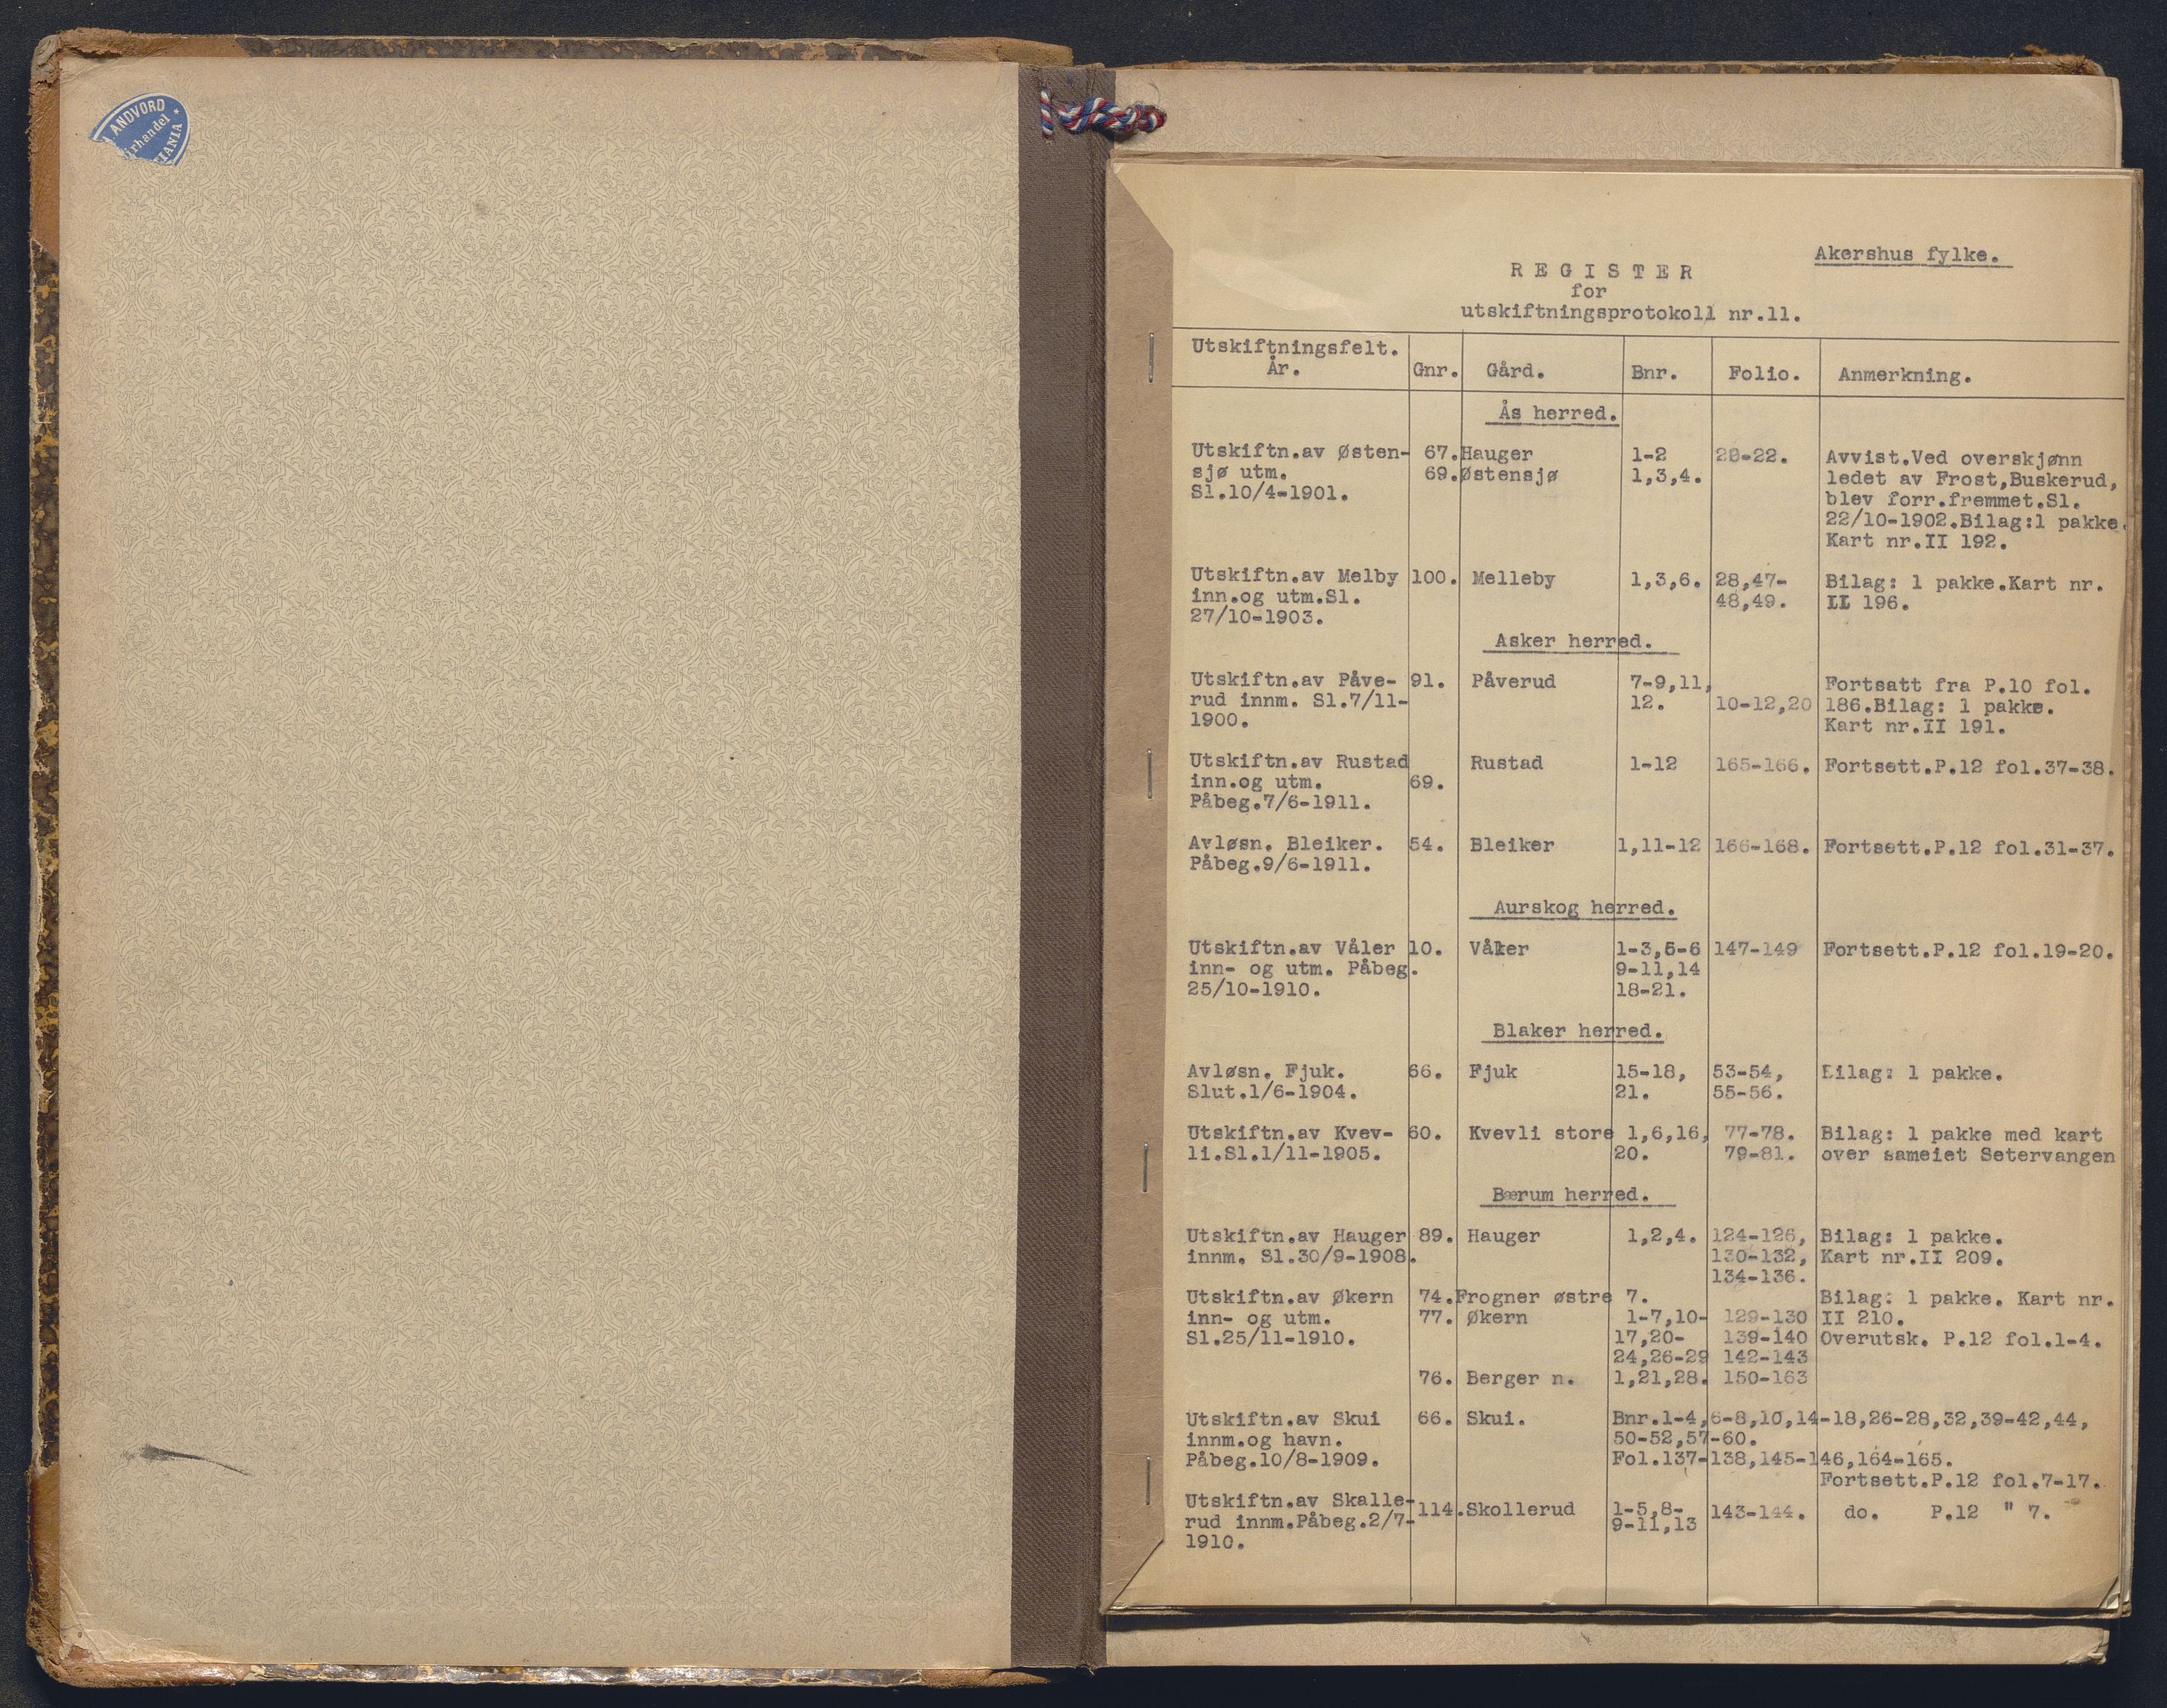 ANDVORD
irhandel
TIANIA
Akershus fylke.
REGISTER
for
utskiftningsprotokoll nr.11.
Utskiftningsfelt.
År. Gnr. Gård. Bnr. Folio. Anmerkning.
Ås herred.
Utskiftn.av Østen- 67. Hauger 1-2 20-22. Avvist.Ved overskjønn
sjø utm. 69. Østensjø 1,3,4. ledet av Frost,Buskerud,
Sl.10/4-1901. blev forr.fremmet.Sl.
22/10-1902.Bilag:1 pakke.
Kart nr.II 192.
Utskiftn.av Melby 100. Melleby 1,3,6. 28,47- Bilag: 1 pakke.Kart nr.
inn.og utm.Sl. 48,49. II 196.
27/10-1903.
Asker herred.
Utskiftn.av Påve- 91. Påverud 7-9,11, Fortsatt fra P.10 fol.
rud innm. Sl.7/11- 12. 10-12,20 186.Bilag: 1 pakke.
1900. Kart nr.II 191.
Utskiftn.av Rustad Rustad 1-12 165-166. Fortsett.P.12 fol.37-38.
inn.og utm. 69.
Påbeg.7/6-1911.
Avløsn. Bleiker. 54. Bleiker 1,11-12 166-168. Fortsett.P.12 fol.31-37.
Påbeg.9/6-1911.
Aurskog herred.
Utskiftn.av Våler 10. Våler 1-3,5-6 147-149 Fortsett.P.12 fol.19-20.
inn- og utm. Påbeg. 9-11,14
25/10-1910. 18-21.
Blaker herred.
Avløsn. Fjuk. 66. Fjuk 15-18, 53-54, Bilag: 1 pakke.
Slut.1/6-1904. 21. 55-56.
Utskiftn.av Kvev- 60. Kvevli store 1,6,16, 77-78. Bilag: 1 pakke med kart
li.Sl.1/11-1905. 20. 79-81. over sameiet Setervangen
Bærum herred.
Utskiftn.av Hauger 89. Hauger 1,2,4. 124-126, Bilag: 1 pakke.
innm. Sl.30/9-1908. 130-132, Kart nr.II 209.
134-136.
Utskiftn.av Økern 74. Frogner østre 7. Bilag: 1 pakke. Kart nr.
inn- og utm. 77. Økern 1-7,10- 129-130 II 210.
Sl.25/11-1910. 17,20- 139-140 Overutsk. P.12 fol.1-4.
24,26-29 142-143
76. Berger n. 1,21,28. 150-163
Utskiftn.av Skui 66. Skui. Bnr.1-4,6-8,10,14-18,26-28,32,39-42,44,
innm.og havn. 50-52,57-60.
Påbeg.10/8-1909. Fol.137-138,145-146,164-165.
Fortsett.P.12 fol.7-17.
Utskiftn.av Skalle- 114. Skollerud 1-5,8- 143-144. do. P.12 " 7.
rud innm.Påbeg.2/7- 9-11,13
1910.